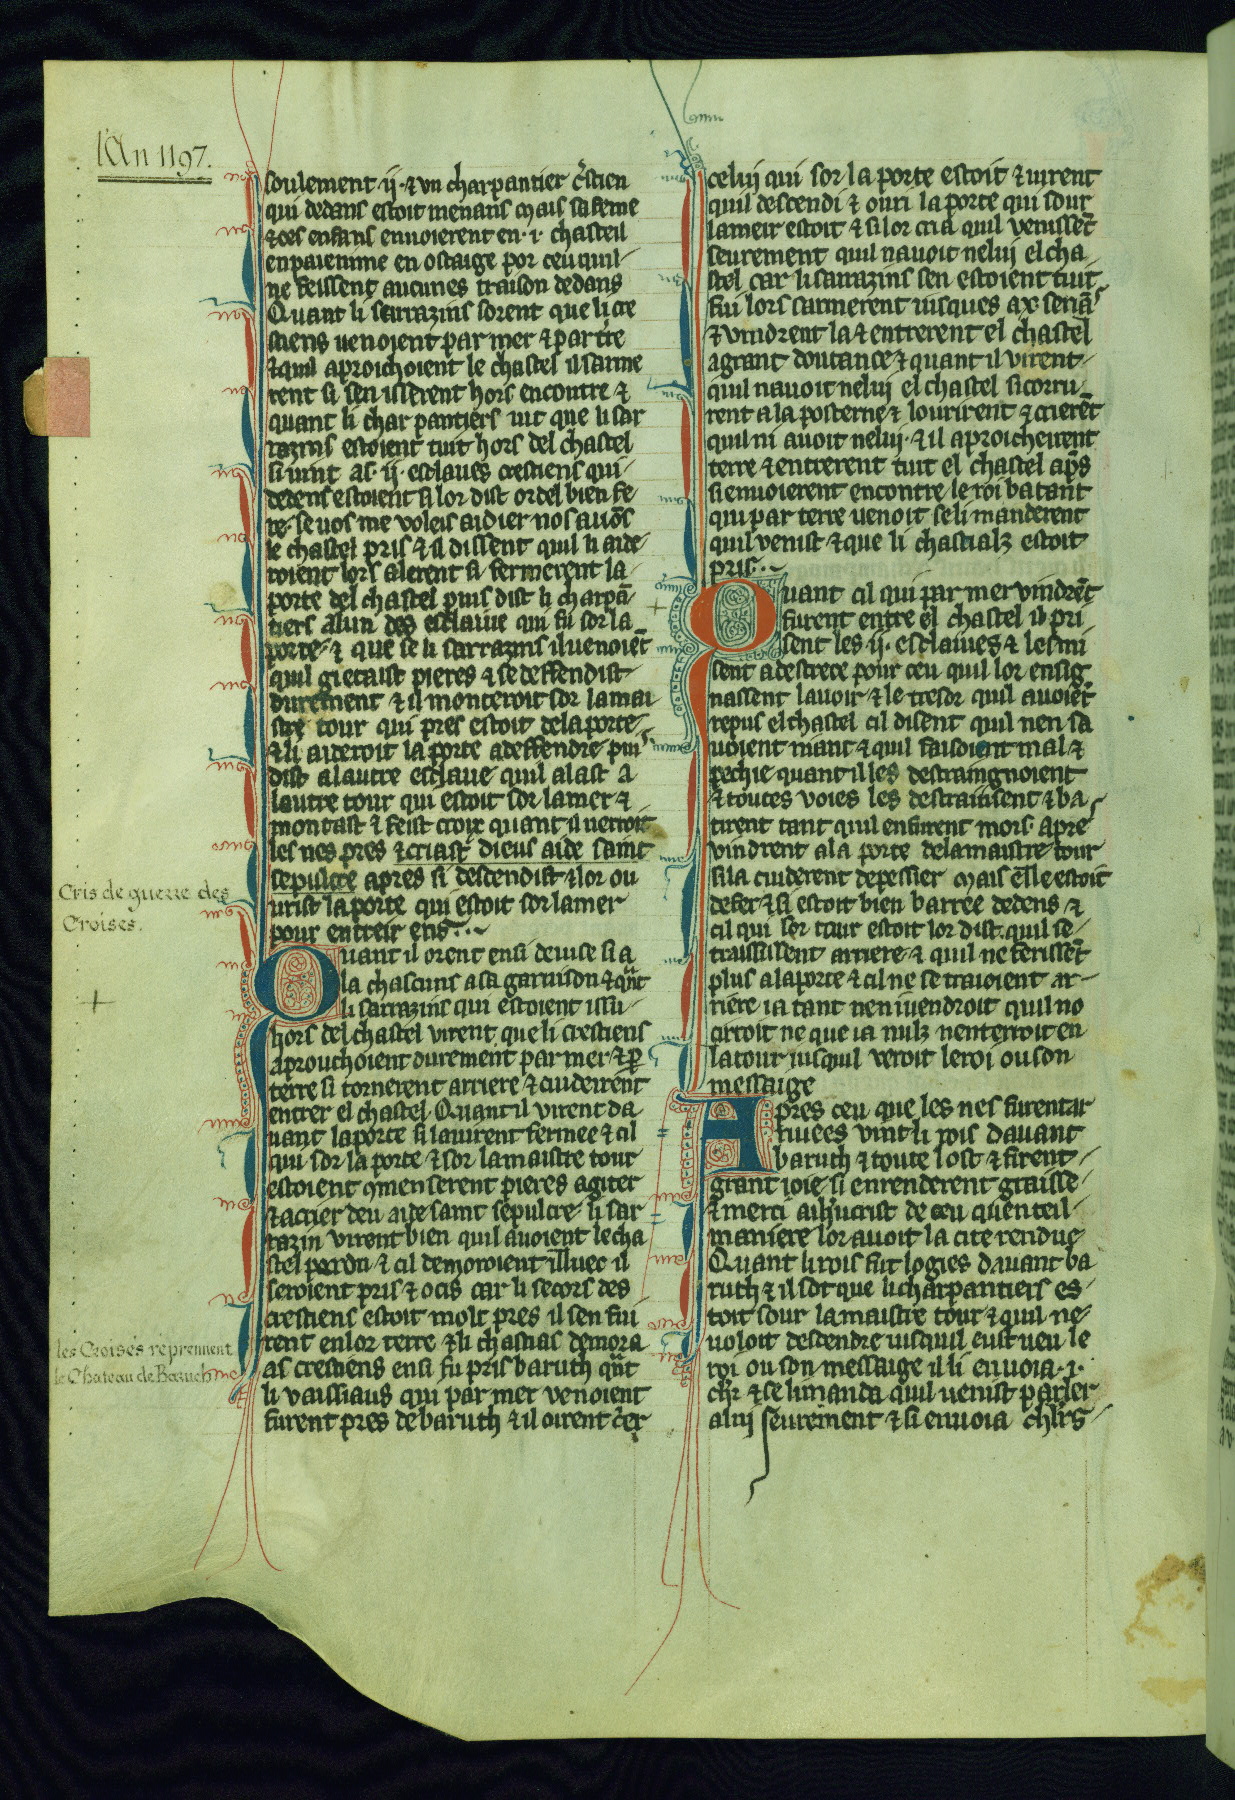 l'An 1197.
soulement .ij. & vn charpantier c̄stien
qui dedans estoit menans mais sa feme
& ces enfans enuoierent en .i. chasteil
en paienime en ostaige por ceu quil
ne feissent aucunes traison dedans
Quant li sarrazins sorent que li cre
stiens uenoient par mer & par t̄re
& quil aproichoient le chastel il sarme
rent si sen isserent hors encontre &
quant li charpantiers uit que li sar
razins estoient tuit hors del chastel
si uint as .ij. esclaues crestiens qui
dedens estoient si lor dist or del bien fe
re. se uos me voleis aidier nos auōs
le chastel pris & il dissent quil li aide
roient lors alerent si fermerent la
porte del chastel puis dist li charpā
tiers a lun des esclaiue qui fu sor la
porte. & que se li sarrazins il uenoiēt
quil gietaist pieres & se deffendist
durement & il monteroit sor la mai
stre tour qui pres estoit de la porte
& li aideroit la porte a deffendre puis
dist a lautre esclaue quil alast a
lautre tour qui estoit sor la mer &
montast & feist croix quant il uerroit
les nes pres & criast dieus aide saint
sepulcre apres si descendist & lor ou
urist la porte qui estoit sor la mer
pour entreir ens.
Cris de guerre des
Croisés.
Quant il orent ensi deuise si a
la chascuns a sa garnison & qnt
li sarrazins qui estoient issu
hors del chastel virent que li crestiens
aprouchoient durement par mer & p̄
terre si tornerent arriere & cuideirent
entrer el chastel Quant il virent da
uant la porte si la uirent fermee & cil
qui sor la porte & sor la maistre tour
estoient qmenserent pieres a giter
& a crier deu aide saint sepulcre li sar
razin virent bien quil auoient le cha
stel perdu & cil demoroient illuec il
seroient pris & ocis car li secors des
crestiens estoit molt pres il sen fui
rent en lor terre & li chastias demora
as crestiens ensi fu pris baruth qnt
li vaissiaus qui par mer venoient
furent pres de baruth & il oirent c̄er
les Croisés reprennent
le Chateau de Baruch
celuj qui sor la porte estoit & uirent
quil descendi & ouri la porte qui sour
la meir estoit & si lor cria quil venissēt
seurement quil nauoit neluj el cha
stel car li sarrazins sen estoient tuit
fui lors sarmerent iusques a x seriās
& vindrent la & entrerent el chastel
a grant doutance & quant il virent
quil nauoit neluj el chastel si corru
rent a la posterne & lourirent & crierēt
quil ni auoit neluj. & il aproicheirent
terre & entrerent tuit el chastel ap̄s
si enuoierent encontre le roi batant
qui par terre uenoit se li manderent
quil venist & que li chastialz estoit
pris.
Quant cil qui par mer vindrēt
furent entre el chastel il pri
sent les .ij. esclaiues & les mi
sent a destrece pour ceu quil lor ensig
nassent lauoir & le tresor quil auoiēt
repus el chastel cil disent quil nen sa
uoient niant & quil faisoient mal &
pechie quant il les destraingnoient
& toutes voies les destraitisent & ba
tirent tant quil en furent mors. apres
vindrent a la porte de la maistre tour
si la cuiderent depessier mais elle estoit
de fer & si estoit bien barree dedens &
cil qui sor tour estoit lor dist. quil se
traississent arriere & quil ne ferissēt
plus a la porte & cil ne se traioient ar
riere ia tant nen i uendroit quil no
cirroit ne que ia nulz nenterroit en
la tour iusquil veroit le roi ou son
messaige
Apres ceu que les nes furent ar
riuees vint li rois dauant
baruth & toute lost & firent
grant joie si en renderent graisse
& merci a ihucrist de ceu quen teil
maniere lor auoit la cite rendue
Quant li rois fut logies dauant ba
ruth & il sot que li charpantiers es
toit sour la maistre tour & quil ne
uoloit descendre iusquil eust ueu le
roi ou son messaige il li enuoia .i.
chr̄ & se li manda quil uenist parler
a luj seurement & si enuoia chlrs